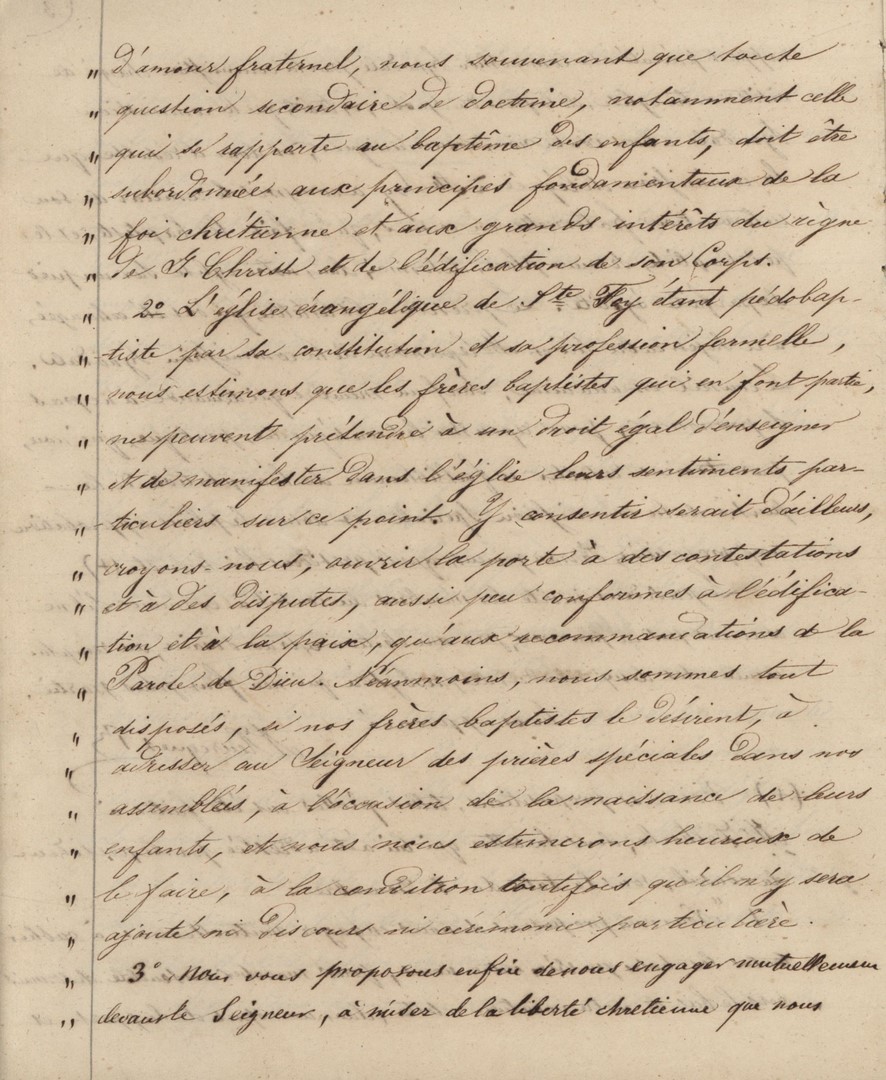 „ d'amour fraternel, nous souvenant que toute
„ question secondaire de doctrine, notamment celle
„ qui se rapporte au baptême des enfants, doit être
„ subordonnée aux principes fondamentaux de la
„ foi chrétienne et aux grands intérêts du règne
„ de J. Christ et de l'édification de son Corps.
„ 2º L'église évangélique de Ste Foy étant pédobap-
„ -tiste par sa constitution et sa profession formelle,
„ nous estimons que les frères baptistes qui en font partie,
„ ne peuvent prétendre à un droit égal d'enseigner
„ et de manifester dans l'église leurs sentiments par-
„ -ticuliers sur ce point. Y consentir serait d'ailleurs,
„ croyons-nous, ouvrir la porte à des contestations
„ et à des disputes, aussi peu conformes à l'édifica-
„ tion et à la paix, qu'aux recommandations de la
„ Parole de Dieu. Néanmoins, nous sommes tout
„ disposés, si nos frères baptistes le désirent, à
„ adresser au Seigneur des prières spéciales dans nos
„ assemblées, à l'occasion de la naissance de leurs
„ enfants, et nous nous estimerons heureux de
„ le faire, à la condition toutefois qu'il n'y sera
„ ajouté ni discours ni cérémonie particulière.
„ 3° Nous vous proposons enfin de nous engager mutuellement
„ devant le Seigneur, à n'user de la liberté chretienne que nous